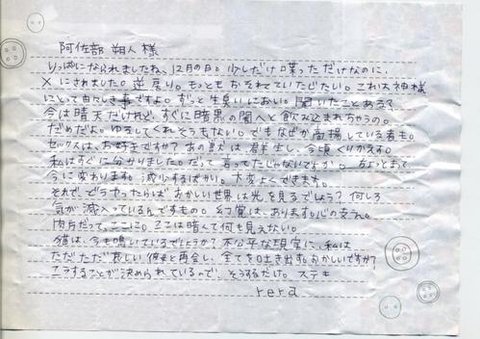 阿佐部 朔人 様
いっぱいになられましたね、12月の日。少しだけ喋っただけなのに、
×にされました。逆戻り。もっともおそれていただきたい。これは神様
にとって由々しき事ですよ。ずっと生臭いにおい。聞いたことある?
今は晴天だけれど、すぐに暗黒の闇へと飲み込まれちゃうの。
だめだよ。ゆるしてくれそうもない。でもなぜか高揚している者も。
セックスは、お好きですか?あの獣は 群生し、今頃くりかえす。
私はすぐに分かりました。だって言ってたじゃないですか。ちょっとまって
今に変わります。減少するばかり。大変よくできます。
それで、どうやったらば おかしい世界は光を見るでしょう?何しろ
気が滅入っているんですもの。幻覚は、あります。心の支え。
肉片だって、ここに。ここは暗くて何も見えない。
猫は、今も鳴いているでしょうか?不公平な現実に、私は
ただただ哀しい彼女と再会し、全てを吐き出す。おかしいですか?
こうすることが決められているので、そうするだけ。ステキ
rera